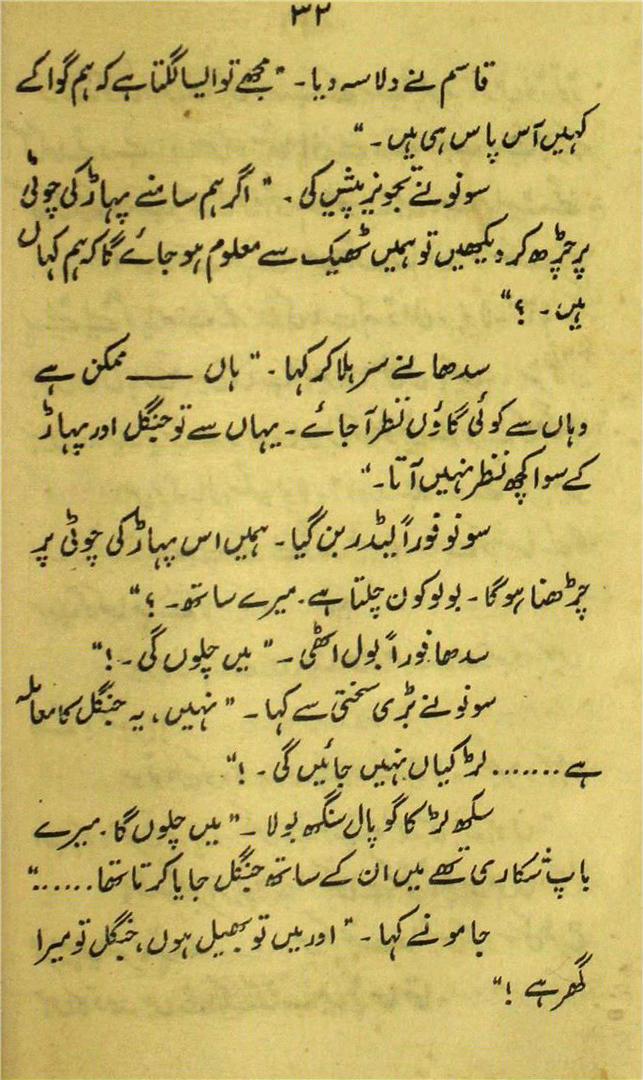 ۳۲
قاسم نے دلاسہ دیا۔ "مجھے تو ایسا لگتا ہے کہ ہم گوا کے
کہیں آس پاس ہی ہیں۔"
سونو نے تجویز پیش کی۔ "اگر ہم سامنے پہاڑ کی چوٹی
پر چڑھ کر دیکھیں تو ہمیں ٹھیک سے معلوم ہو جائے گا کہ ہم کہاں
ہیں۔؟"
سدھا نے سر ہلا کر کہا۔ "ہاں —— ممکن ہے
وہاں سے کوئی گاؤں نظر آ جائے۔ یہاں سے تو جنگل اور پہاڑ
کے سوا کچھ نظر نہیں آتا۔"
سونو فوراً لیڈر بن گیا۔ ہمیں اس پہاڑ کی چوٹی پر
چڑھنا ہو گا۔ بولو کون چلتا ہے۔ میرے ساتھ۔؟"
سدھا فوراً بول اٹھی۔ "میں چلوں گی۔!"
سونو نے بڑی سختی سے کہا۔ "نہیں، یہ جنگل کا معاملہ
ہے....... لڑکیاں نہیں جائیں گی۔!"
سکھ لڑکا گوپال سنگھ بولا۔ "میں چلوں گا۔ میرے
باپ شکاری تھے میں ان کے ساتھ جنگل جایا کرتا تھا......"
جامو نے کہا۔ "اور میں تو بھیل ہوں، جنگل تو میرا
گھر ہے!"